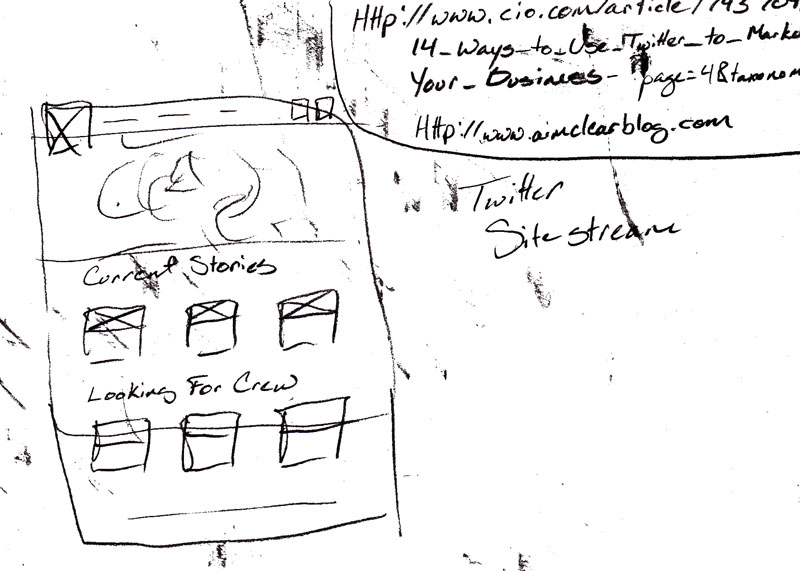 Http://www.cio.com/article/
14_Ways_to_Use_Twitter_to_Marke
Your_Business- page=4&taxonom
Http://www.aimclearblog.com
Twitter
Site stream
Current Stories
Looking For Crew